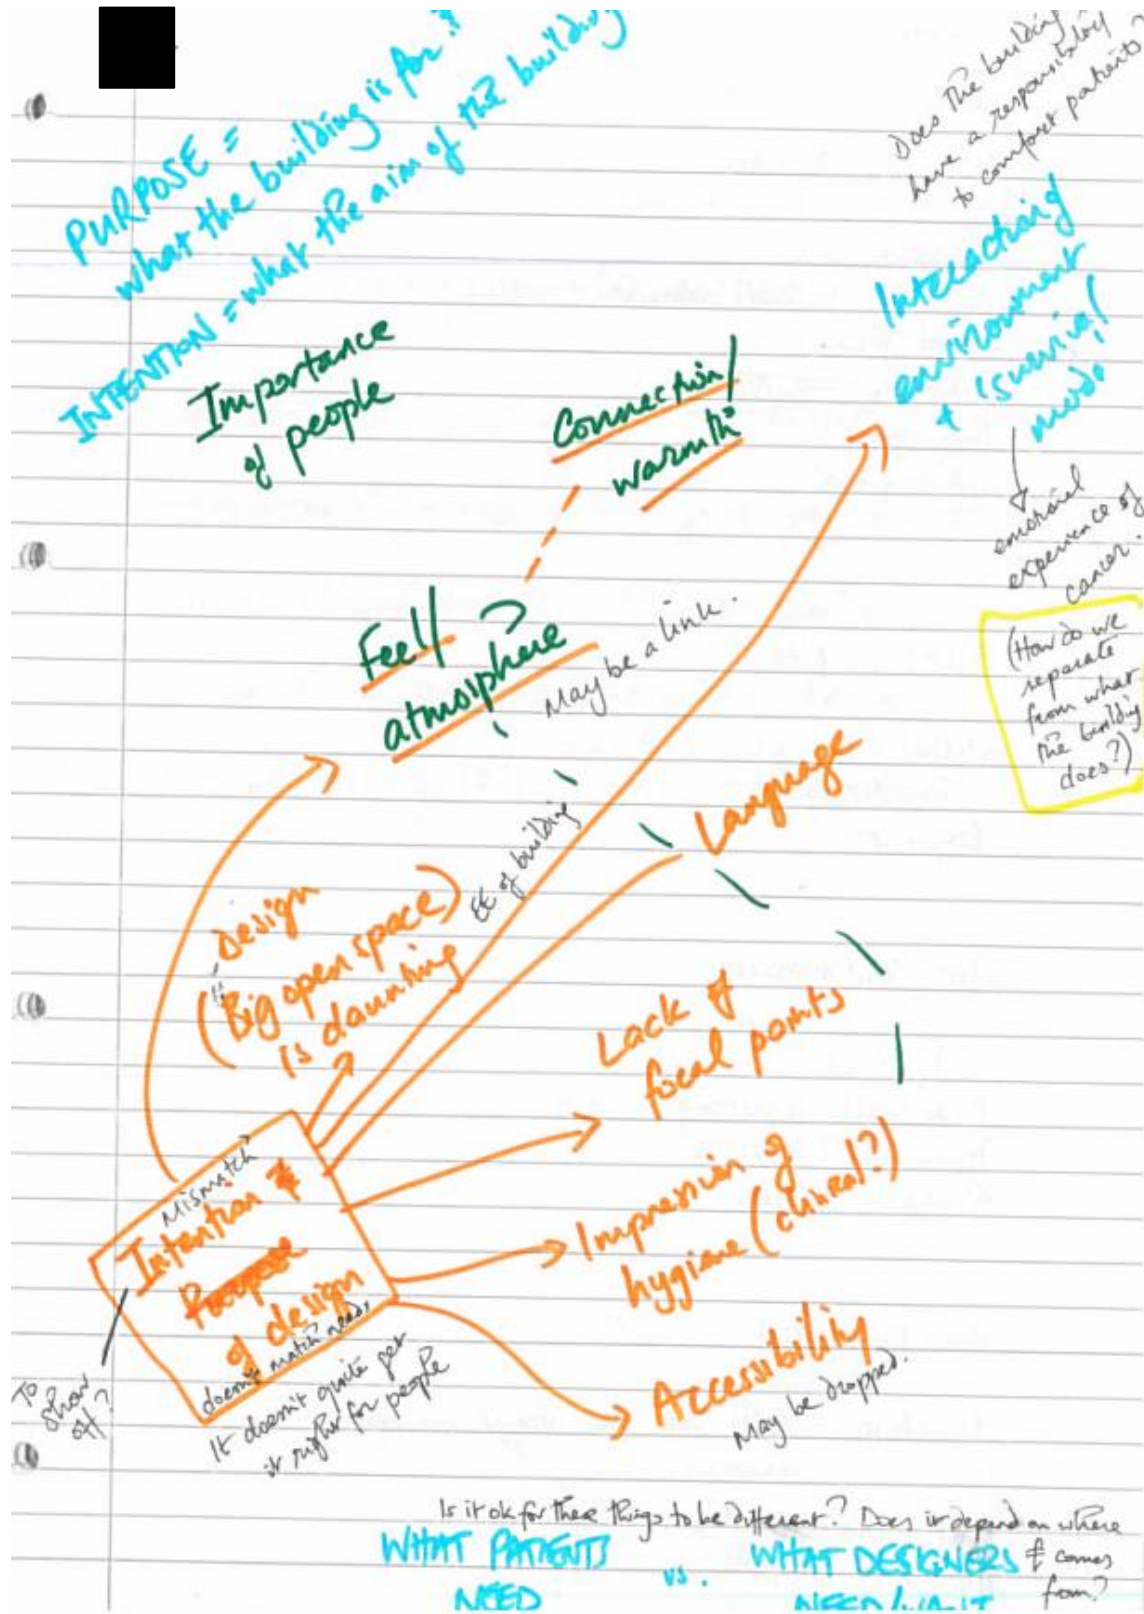 PURPOSE =
what the building is for?
INTENTION = what the aim of the building
Does the building
have a responsibility
to comfort patients?
Interacting
environment
+ 'surviving'
mode
emotional
experience of
cancer.
(How do we
separate
from what
the building
does?)
Importance
of people
Connection/
warmth
Feel/
atmosphere?
May be a link.
Language
Design
(Big open space)
is daunting
of building
Lack of
focal points
Impression of
hygiene (clinical?)
Accessibility
May be dropped.
Mismatch
Intention ≠
Purpose
of design
doesn't match needs
It doesn't quite get
it right for people
To
show
off?
Is it ok for these things to be different? Does it depend on where
£ comes
from?
WHAT PATIENTS
NEED
vs.
WHAT DESIGNERS
NEED/WANT